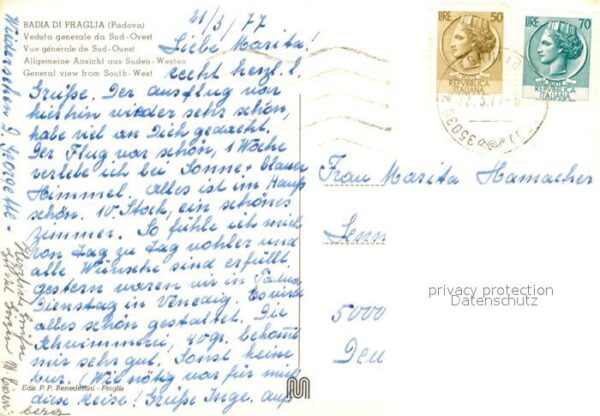 BADIA DI PRAGLIA (Padova)
Veduta generale da Sud-Ovest
Vue générale de Sud-Ouest
Allgemeine Ansicht aus Suden-Westen
General view from South-West
21/3/77
Liebe Marita!
recht herzl.
Grüße. Der Ausflug vor
hierhin wieder sehr schön,
habe viel an Dich gedacht.
Der Flug war schön, 1 Woche
verlebe ich bei Sonne + blauer
Himmel. Alles ist im Haus
schön. 10. Stock, ein schönes
Zimmer. So fühle ich mich
von Tag zu Tag wohler und
alle Wünsche sind erfüllt
gestern waren wir in Padua
Dienstag in Venedig. Es wird
alles schön gestaltet. Die
Schwimmerei, 40 gr. bekommt
mir sehr gut. Sonst keine
Kur. (Wie nötig war für mich
diese Reise! Grüße Inge. auf
Wiedersehen
Edit. P. P. Benedettini - Praglia
LIRE 50
REPUBBLICA
ITALIANA
LIRE 70
REPUBBLICA
ITALIANA
Frau Marita Hamacher
5000
privacy protection
Datenschutz